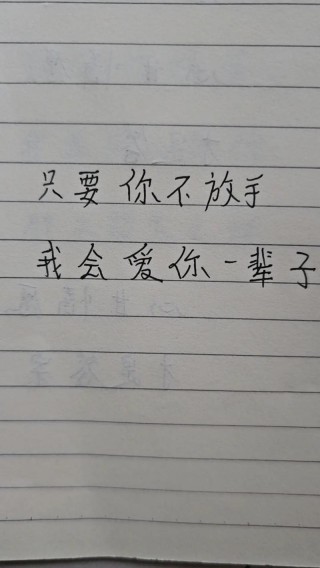 只要你不放手
我会爱你一辈子